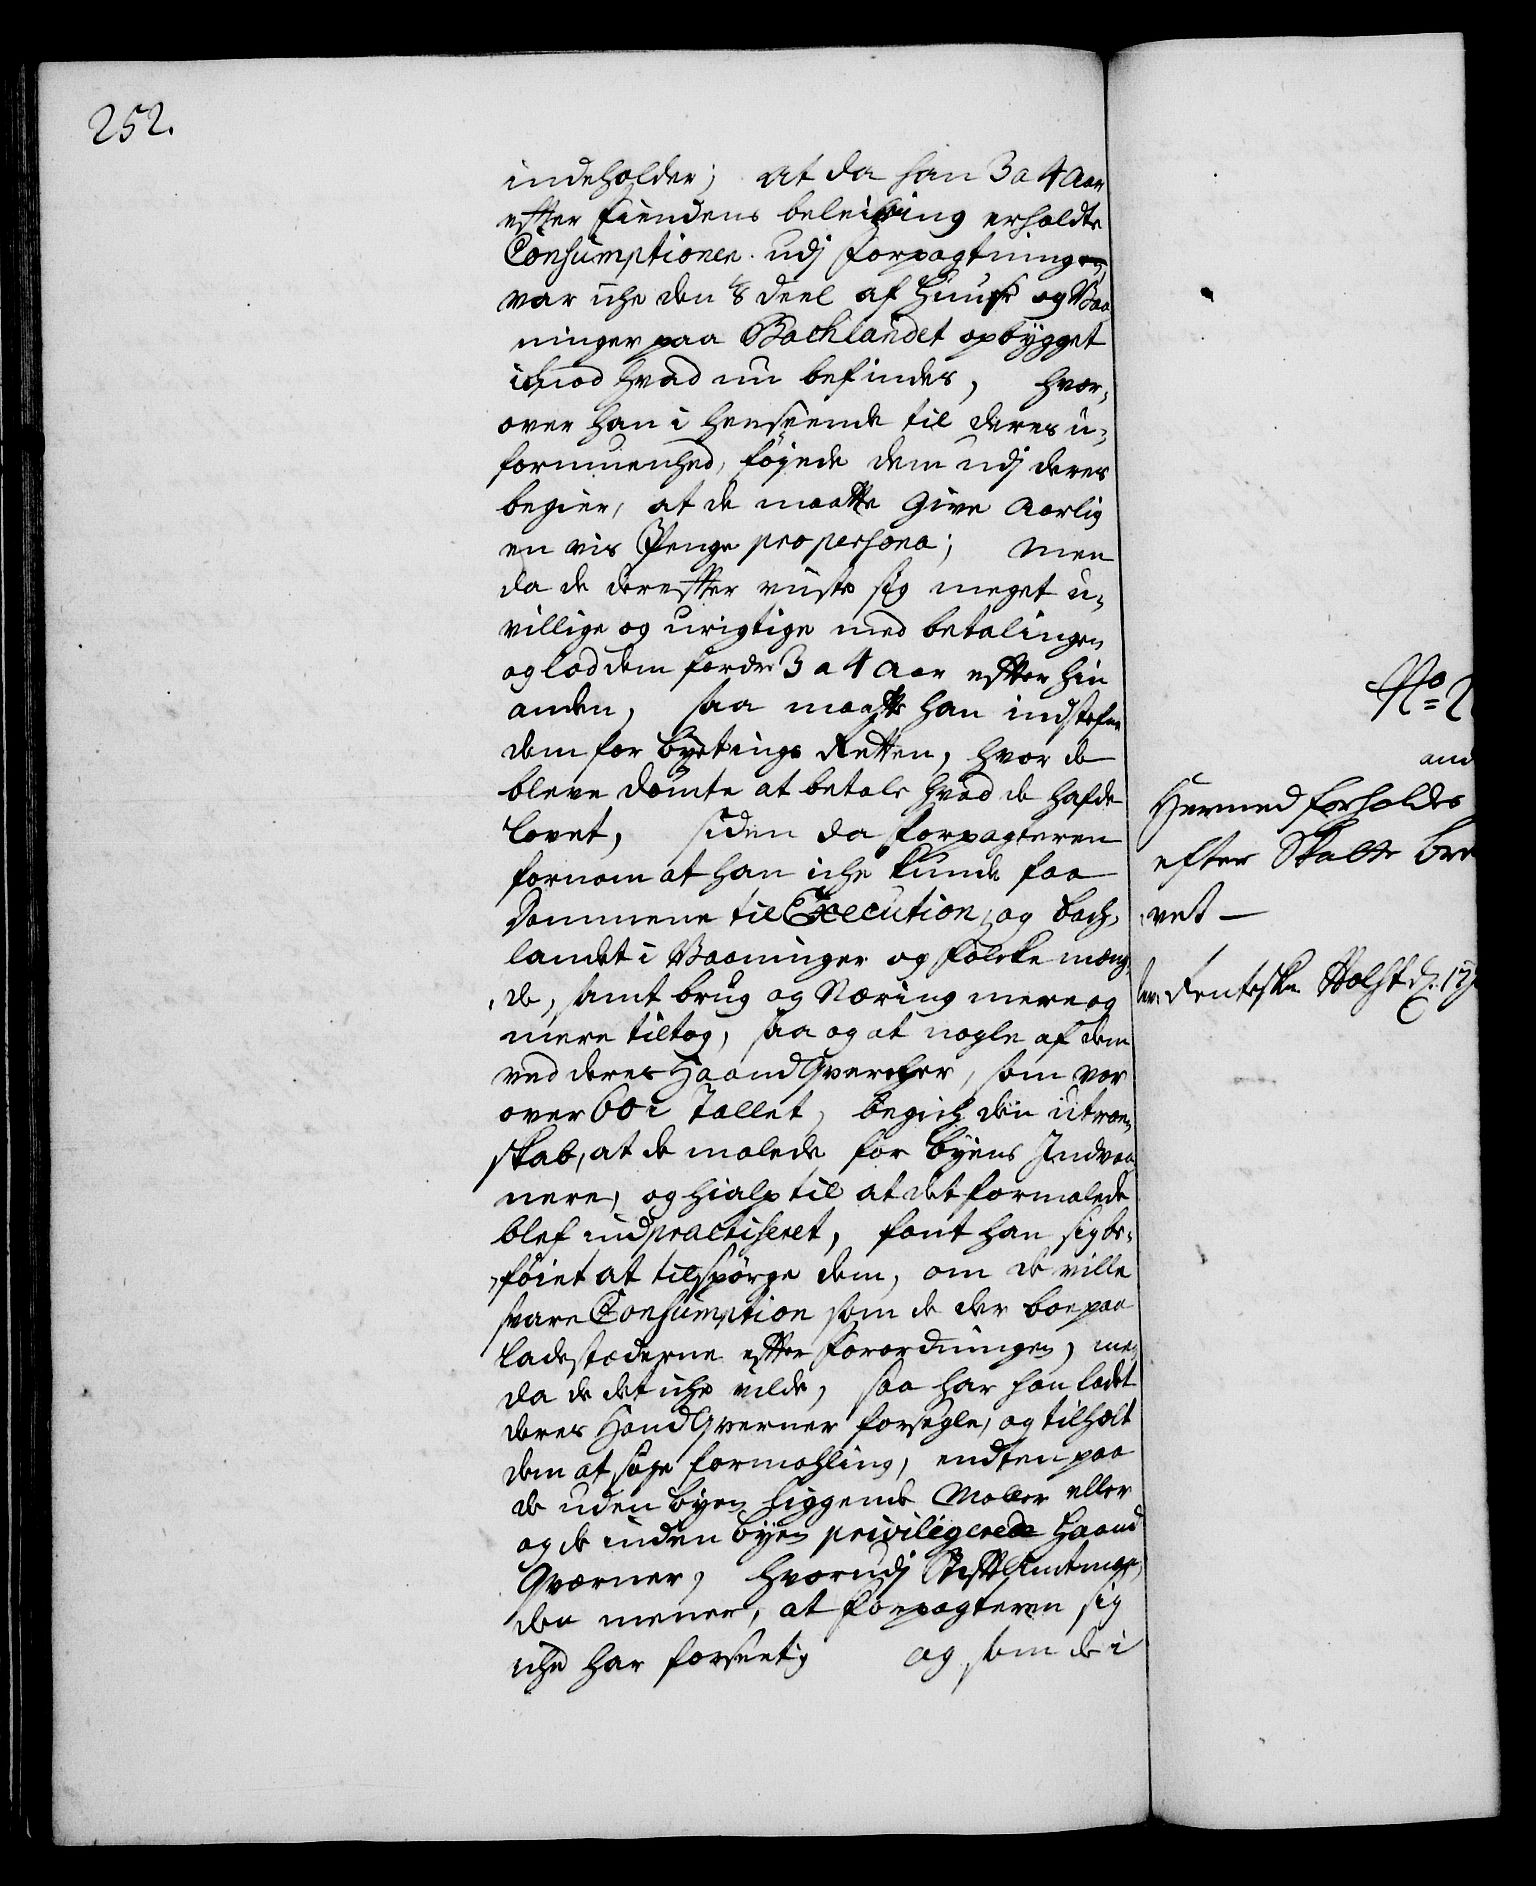 252.
indeholder; at da han 3 a 4 Aar
efter Fiendens beleiring erholdte
Consumptionen udj forpagtningen
var iche den 1/8 deel af Huuse og Vaa
ninger paa Bachlandet opbygget
imod hvad nu befindes, hvor,
over han i henseende til deres u,
formuenhed, føyede dem udj deres
begier, at de maatte Give Aarlig
en vis Penge pro persona; men
da de derefter viiste sig meget u,
villige og urigtige med betalingen
og lod dem fordre 3 a 4 Aar efter hin
anden, saa maatte han indstefne
dem for byetings Retten, hvor de
bleve dømte at betale hvad de hafde
lovet, siden da forpagteren
fornam at han iche kunde faa
Dommene til Execution, og bach,
landet i Vaaninger og folcke mæng,
de, samt brug og Næring mere og
mere tiltog, saa og at nogle af dem
ved deres Haand Qverner, som var
over 60 i Tallet, begich den utroe,
skab, at de malede for byens Indvaa
nere, og hialp til at det formalede
blef indpractiseret, fant han sig be,
føiet at tilspørge dem, om de ville
svare Consumption som de der boe paa
ladestæderne efter forordningen, men
da de det iche vilde, saa har han ladet
deres Haand Qverner forsegle, og tilholt
dem at søge formahling, endten paa
de uden byen liggende Møller eller
og de inden byen privilegerede Haand
Qværner, hvorudj Stiftamtman,
den mener, at forpagteren sig
iche har forseet, og som de i
No 2
and
Hermed forholdes
efter Skatte bre
vet —
Renteskr. Holst d. 17